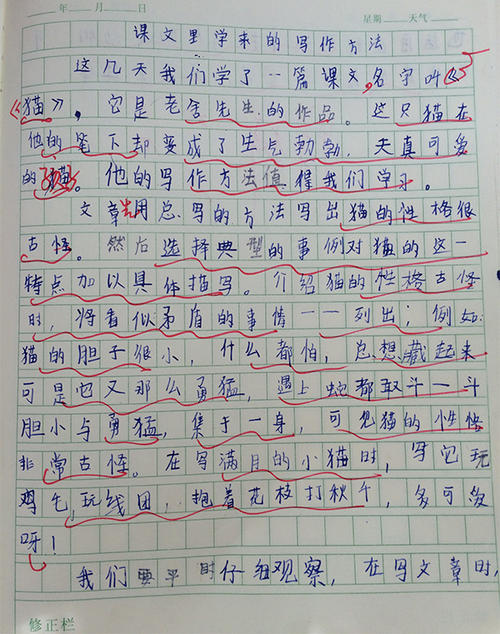 年 月 日 星期 天气
课文里学来的写作方法
这几天我们学了一篇课文,名字叫《
《猫》，它是老舍先生的作品。这只猫在
他的笔下却变成了生气勃勃，天真可爱
的猫。他的写作方法值得我们学习。
文章先用总写的方法写出猫的性格很
古怪。然后选择典型的事例对猫的这一
特点加以具体描写。介绍猫的性格古怪
时，将看似矛盾的事情一一列出；例如：
猫的胆子很小，什么都怕，总想藏起来
可是它又那么勇猛，遇上蛇都敢斗一斗
胆小与勇猛，集于一身，可见猫的性格
非常古怪。在写满月的小猫时，写它玩
鸡毛,玩线团，抱着花枝打秋千，多可爱
呀！
我们要平时仔细观察，在写文章时，
修正栏